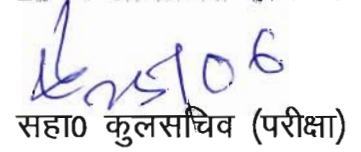 सहा0 कुलसचिव (परीक्षा)